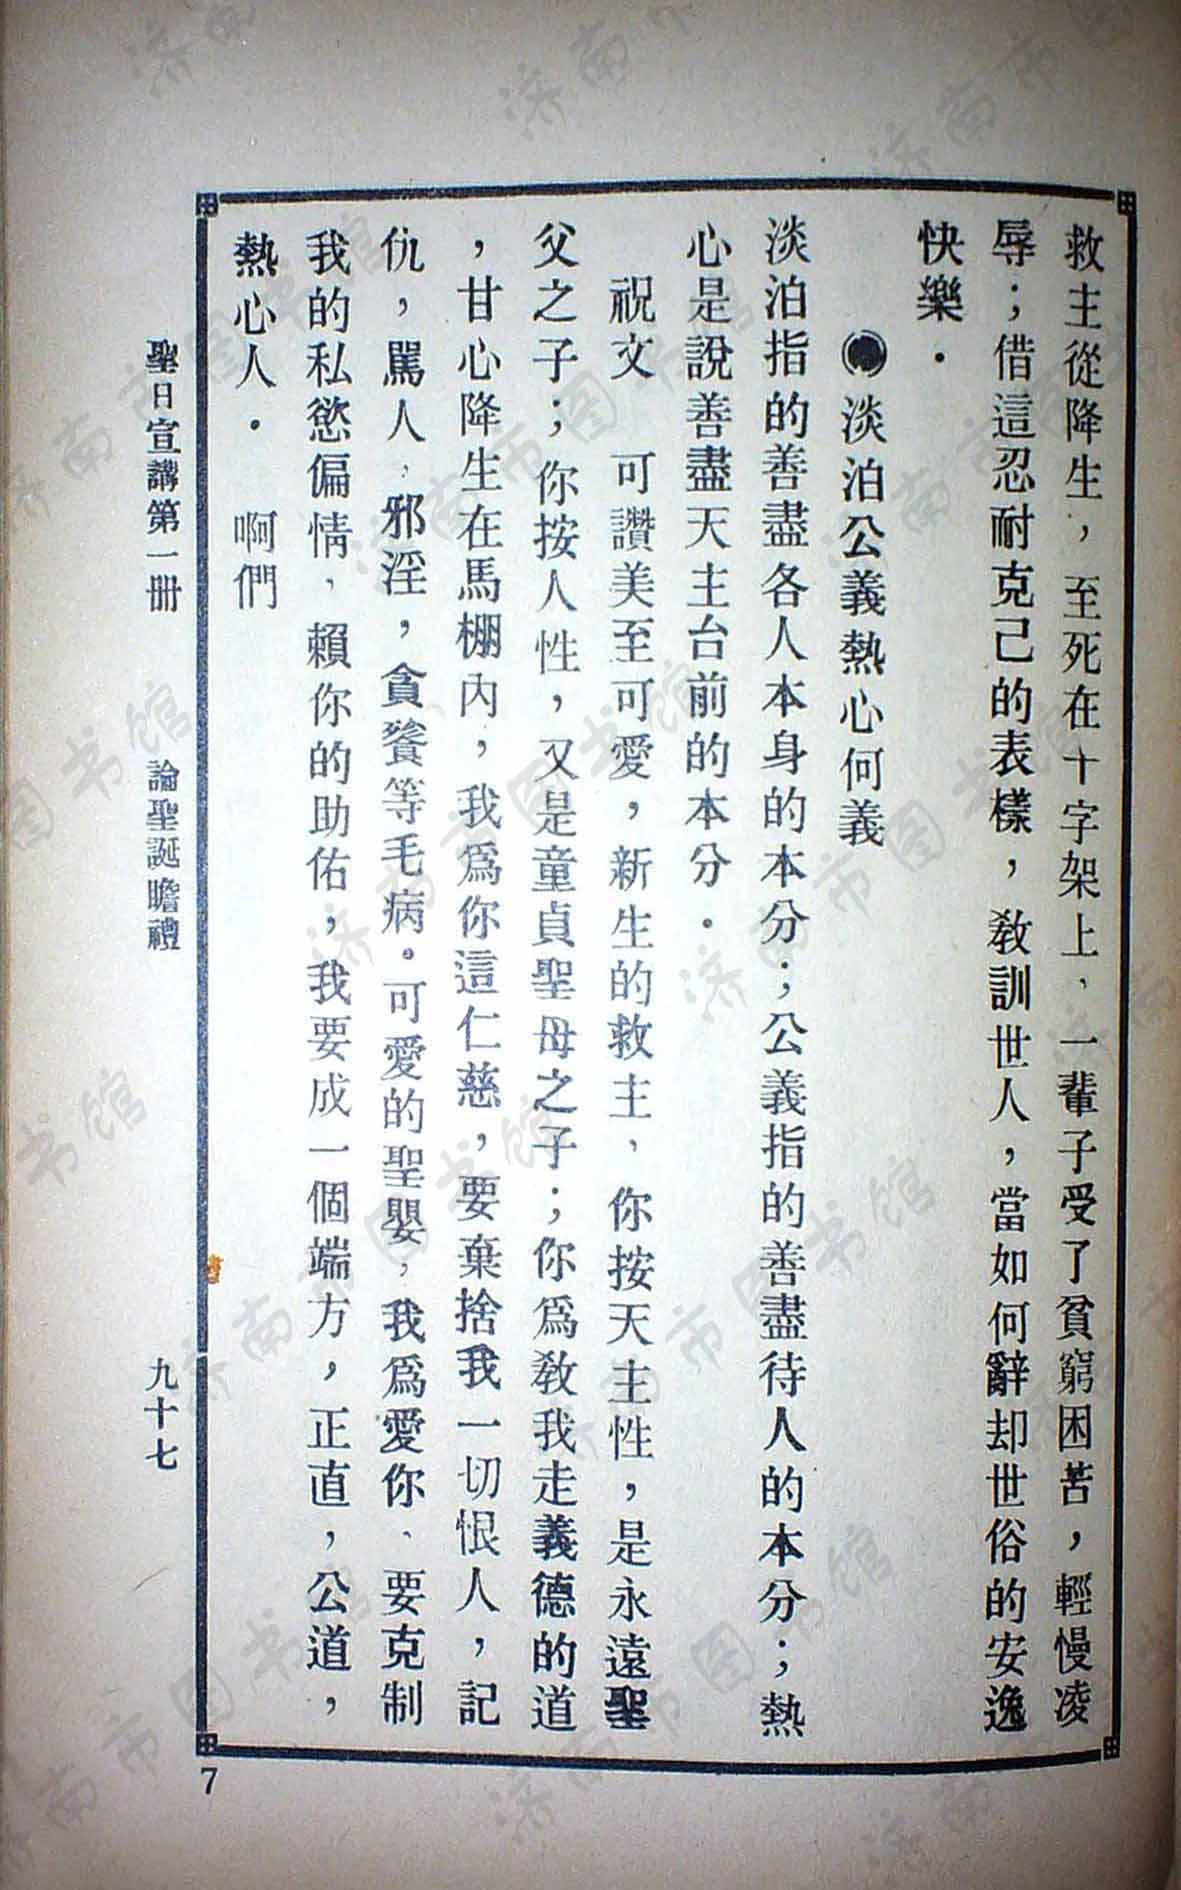 救主從降生，至死在十字架上，一輩子受了貧窮困苦，輕慢凌
辱；借這忍耐克己的表樣，敎訓世人，當如何辭却世俗的安逸
快樂．
淡泊公義熱心何義
淡泊指的善盡各人本身的本分；公義指的善盡待人的本分；熱
心是說善盡天主台前的本分．
祝文　可讚美至可愛，新生的救主，你按天主性，是永遠聖
父之子；你按人性，又是童貞聖母之子；你爲敎我走義德的道
，甘心降生在馬棚內，我爲你這仁慈，要棄捨我一切恨人，記
仇，罵人，邪淫，貪饕等毛病。可愛的聖嬰，我爲愛你、要克制
我的私慾偏情，賴你的助佑，我要成一個端方，正直，公道，
熱心人．　啊們
聖日宣講第一册　論聖誕瞻禮　九十七
7
济南市图书馆